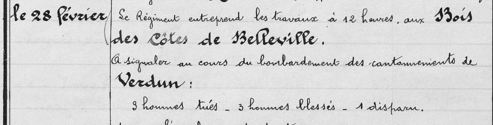 le 28 février Le Régiment entreprend les travaux à 12 heures, aux Bois
des Côtes de Belleville.
A signaler au cours du bombardement des cantonnements de
Verdun :
3 hommes tués - 3 hommes blessés - 1 disparu.